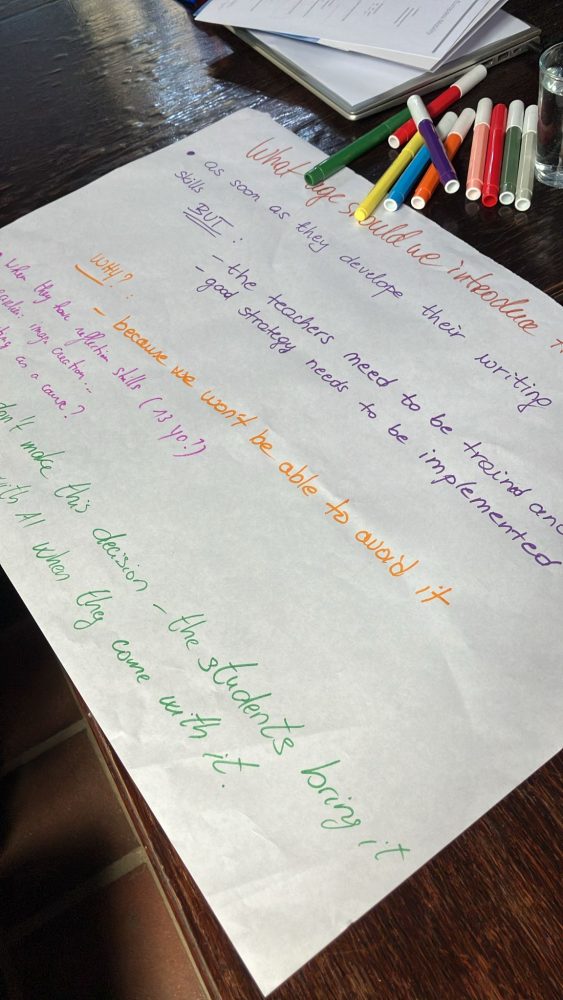 What age should we introduce
• as soon as they develope their writing
skills
BUT:
- the teachers need to be traind and
- good strategy needs to be implemented
WHY?:
- because we won't be able to avoid it
• When they have reflection skills (13 yo?)
image creation...
as a cause?
don't make this decision - the students bring it
with AI when they come with it.